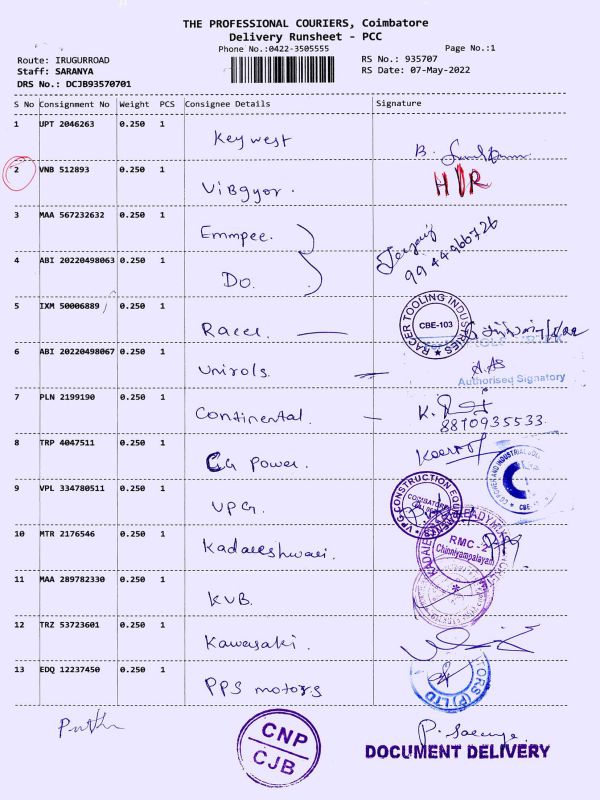 THE PROFESSIONAL COURIERS, Coimbatore
Delivery Runsheet - PCC
Phone No.:0422-3505555
Page No.:1
Route: IRUGURROAD
Staff: SARANYA
DRS No.: DCJB93570701
RS No.: 935707
RS Date: 07-May-2022
S No Consignment No Weight PCS Consignee Details Signature
1 UPT 2046263 0.250 1 Key west B.
2 VNB 512893 0.250 1 ViBgyor. HVR
3 MAA 567232632 0.250 1 Emmpee.
4 ABI 20220498063 0.250 1 Do. 9944966726
5 IXM 50006889 0.250 1 Racer RACER TOOLING INDUSTRIES CBE-103
6 ABI 20220498067 0.250 1 Unirols. Authorised Signatory
7 PLN 2199190 0.250 1 Continental. K.
8870935533
8 TRP 4047511 0.250 1 CG Power.
9 VPL 334780511 0.250 1 VPG. VPG CONSTRUCTION
10 MTR 2176546 0.250 1 Kadaieshwari. RMC-2 Chinniyampalayam
11 MAA 289782330 0.250 1 KVB.
12 TRZ 53723601 0.250 1 Kawasaki.
13 EDQ 12237450 0.250 1 PPS motors
CNP
CJB
DOCUMENT DELIVERY